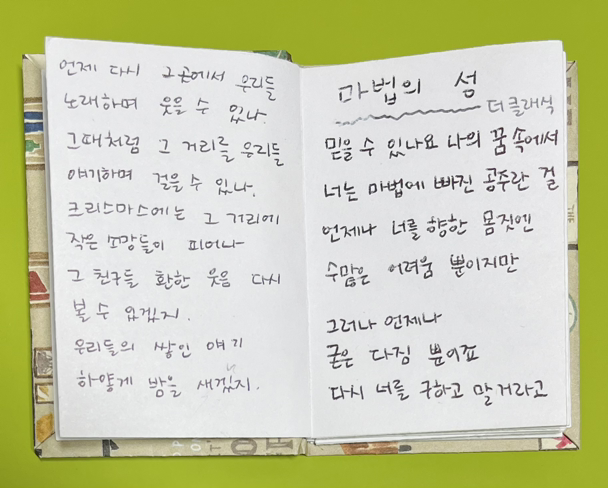 언제 다시 그곳에서 우리들
노래하며 웃을 수 있나.
그때처럼 그 거리를 우리들
얘기하며 걸을 수 있나.
크리스마스에는 그 거리에
작은 소망들이 피어나
그 친구들 환한 웃음 다시
볼 수 있겠지.
우리들의 쌓인 얘기
하얗게 밤을 새겠지.
마법의 성
더 클래식
믿을 수 있나요 나의 꿈속에서
너는 마법에 빠진 공주란 걸
언제나 너를 향한 몸짓엔
수많은 어려움 뿐이지만
그러나 언제나
굳은 다짐 뿐이죠
다시 너를 구하고 말 거라고